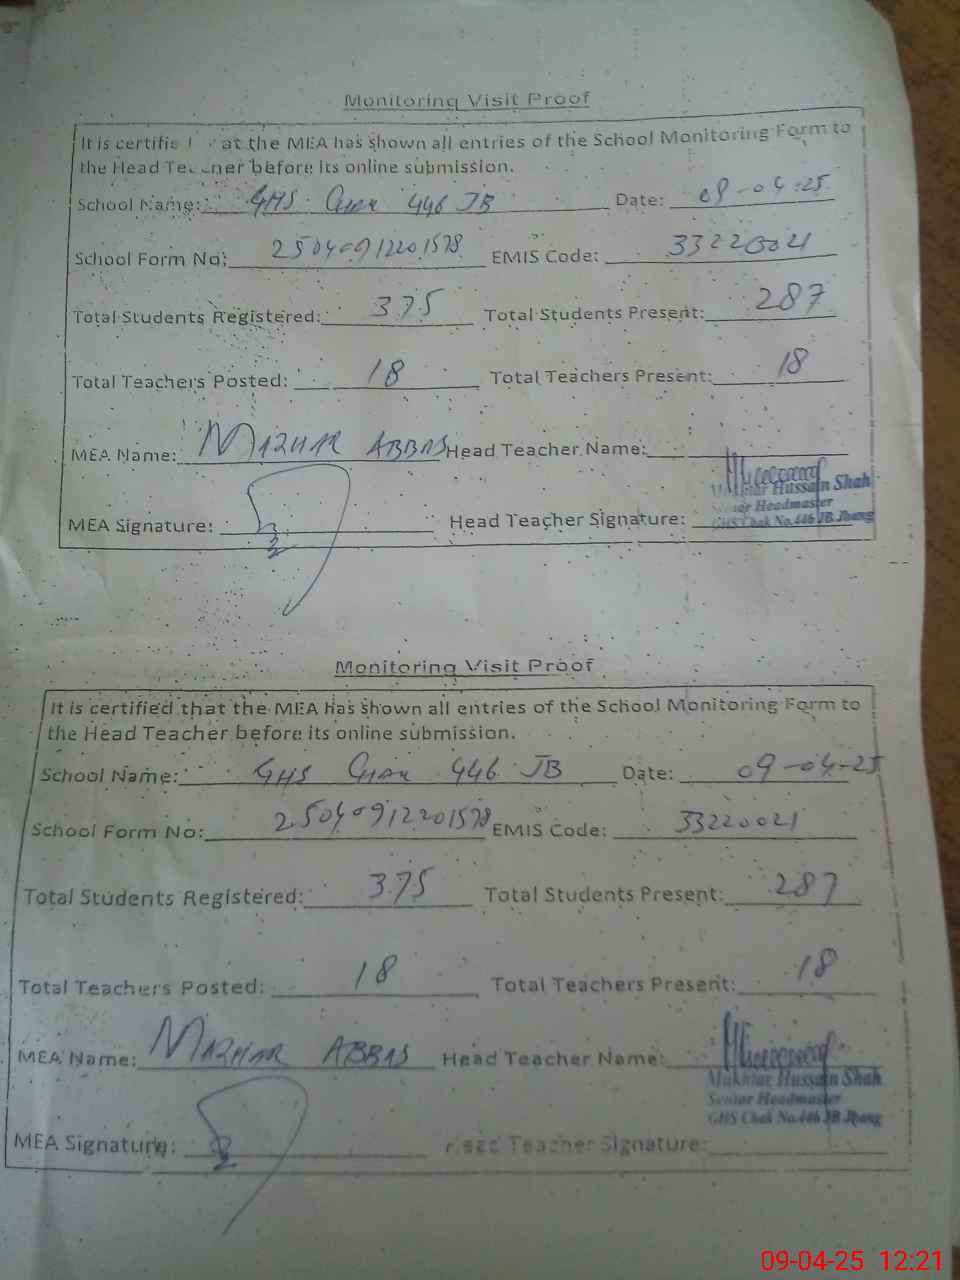 Monitoring Visit Proof
It is certifie at the MEA has shown all entries of the School Monitoring Form to
the Head Te ner before its online submission.
School Name: GHS Chak 446 JB Date: 09-04-25
School Form No: 25040912201578 EMIS Code: 33220021
Total Students Registered: 375 Total Students Present: 287
Total Teachers Posted: 18 Total Teachers Present: 18
MEA Name: MAZHAR ABBAS Head Teacher Name:
Mukhtar Hussain Shah
Senior Headmaster
MEA Signature: Head Teacher Signature: GHS Chak No.446 JB Jhang
Monitoring Visit Proof
It is certified that the MEA has shown all entries of the School Monitoring Form to
the Head Teacher before its online submission.
School Name: GHS Chak 446 JB Date: 09-04-25
School Form No: 25040912201578 EMIS Code: 33220021
Total Students Registered: 375 Total Students Present: 287
Total Teachers Posted: 18 Total Teachers Present: 18
MEA Name: MAZHAR ABBAS Head Teacher Name:
Mukhtar Hussain Shah
Senior Headmaster
GHS Chak No.446 JB Jhang
MEA Signature: Head Teacher Signature:
09-04-25 12:21